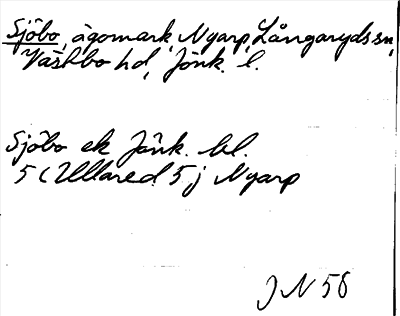 Sjöbo, ägomark, Nyarp, Långaryds sn,
Västbo hd, Jönk. l.
Sjöbo ek Jönk. bl.
5 C Ullared 5 j Nyarp
J N 58